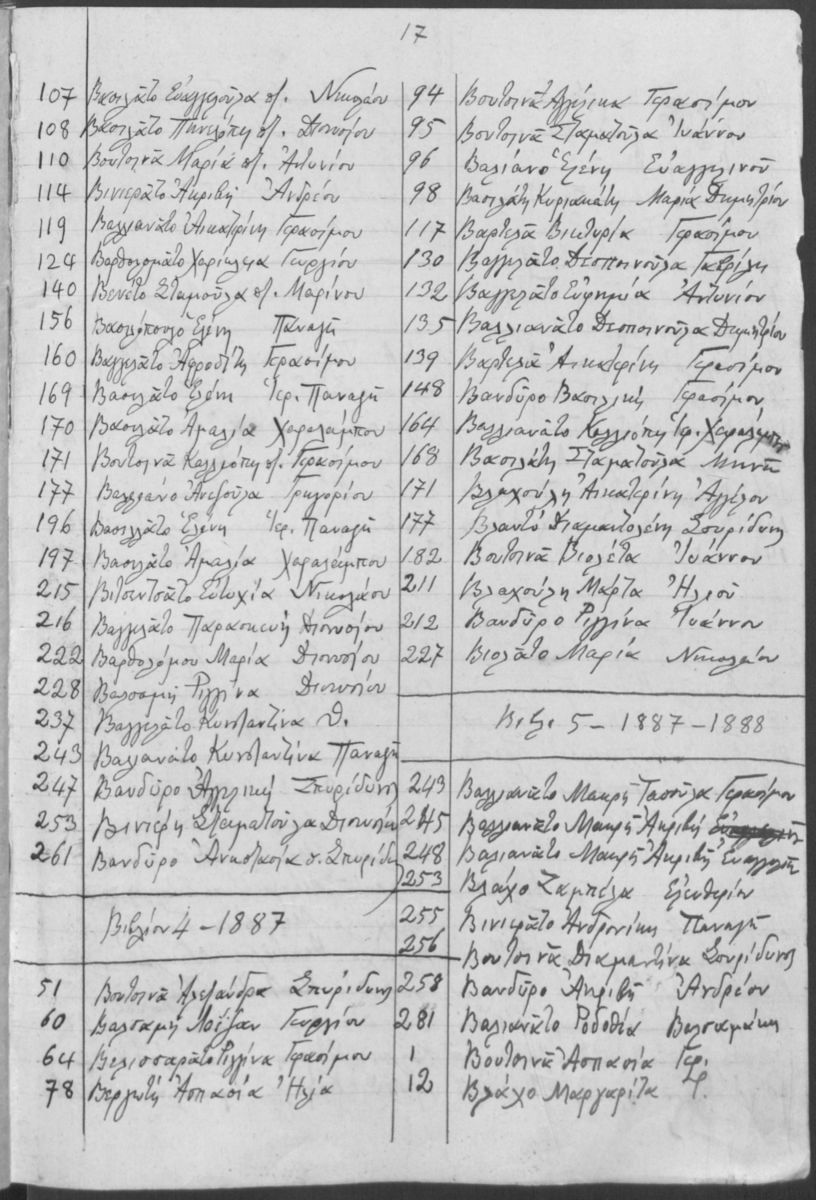 17
107 Βασιλάτο Εὐαγγελούλα
Νικολάου
108 Βασιλάτο Πηνελόπη
Διονυσίου
110 Βουτσινᾶ Μαρία
Ἀντωνίου
114 Βινιεράτο Ἀκριβή Ἀνδρέου
119 Βαλλιανάτο Αἰκατρίνη Γερασίμου
124 Βαρθολομάτο Χαρίκλεια Γεωργίου
140 Βενέτο Σταμούλα
Μαρίνου
156 Βασιλόπουλο Ἑλένη Παναγῆ
160 Βαγγελάτο Ἀφροδίτη Γερασίμου
169 Βασιλάτο Ἑλένη Γερ. Παναγῆ
170 Βασιλάτο Ἀμαλία Χαραλάμπου
171 Βουτσινᾶ Καλλιόπη
Γερασίμου
177 Βαλλιάνο Ἀνεζούλα Γρηγορίου
196 Βασιλάτο Ἑλένη Γερ. Παναγῆ
197 Βασιλάτο Ἀμαλία Χαραλάμπου
215 Βιτσεντσάτο Εὐτυχία Νικολάου
216 Βαγγελάτο Παρασκευή Διονυσίου
222 Βαρθολόμου Μαρία Διονυσίου
228 Βαλσαμῆ Ριγγίνα Διονυσίου
237 Βαγγελάτο Κωνσταντίνα Θ.
243 Βαλιανάτο Κωνσταντίνα Παναγῆ
247 Βανδῶρο Ἀγγελική Σπυρίδωνος
253 Βινιέρη Σταματούλα Διονυσίου
261 Βανδῶρο Ἀναστασία Σπυρίδων
Βιβλίον 4 - 1887
51 Βουτσινᾶ Ἀλεξάνδρα Σπυρίδωνος
60 Βαλσαμῆ Λοΐζα Γεωργίου
64 Βελισσαράτο Ριγγίνα Γερασίμου
78 Βεργωτῆ Ἀσπασία Ἠλία
94 Βουτσινᾶ Ἀγγέλικα Γερασίμου
95 Βουτσινᾶ Σταματούλα Ἰωάννου
96 Βαλιάνο Ἑλένη Εὐαγγελινοῦ
98 Βασιλάτη Κυριακάτη Μαρία Δημητρίου
117 Βαρτελᾶ Βικτωρία Γερασίμου
130 Βαγγελάτο Δεσποινούλα Γαβρίλη
132 Βαγγελάτο Εὐφημία Ἀντωνίου
135 Βαλλιανάτο Δεσποινούλα Δημητρίου
139 Βαρτελᾶ Αἰκατρίνη Γερασίμου
148 Βανδῶρο Βασιλική Γερασίμου
164 Βαλλιανάτο Καλλιόπη Γερ. Χαραλάμπου
168 Βασιλάτη Σταματούλα Μηνᾶ
171 Βλαχούλη Αἰκατερίνη Ἀγγέλου
177 Βλαντῆ Διαμαντολένη Σπυρίδωνος
182 Βουτσινᾶ Βιολέτα Ἰωάννου
211 Βλαχούλη Μάρτα Ἠλιοῦ
212 Βανδῶρο Ριγγίνα Ἰωάννου
227 Βιολάτο Μαρία Νικολάου
Βιβλ. 5 - 1887 - 1888
243 Βαλλιανάτο Μακρῆ Τασούλα Γερασίμου
245 Βαλλιανάτο Μακρῆ Ἀκριβή
248 Βαλιανάτο Μακρῆ Ἀκριβή Εὐαγγελῆ
253 Βλάχο Ζαμπέλα Ἐλευθερίου
255 Βινιεράτο Ἀνδρονίκη Παναγῆ
256 Βουτσινᾶ Διαμαντίνα Σπυρίδωνος
258 Βανδῶρο Ἀκριβή Ἀνδρέου
281 Βαλιανάτο Ροδοθέα Βαλσαμάκη
1 Βουτσινᾶ Ἀσπασία Γερ.
12 Βλάχο Μαργαρίτα Γ.